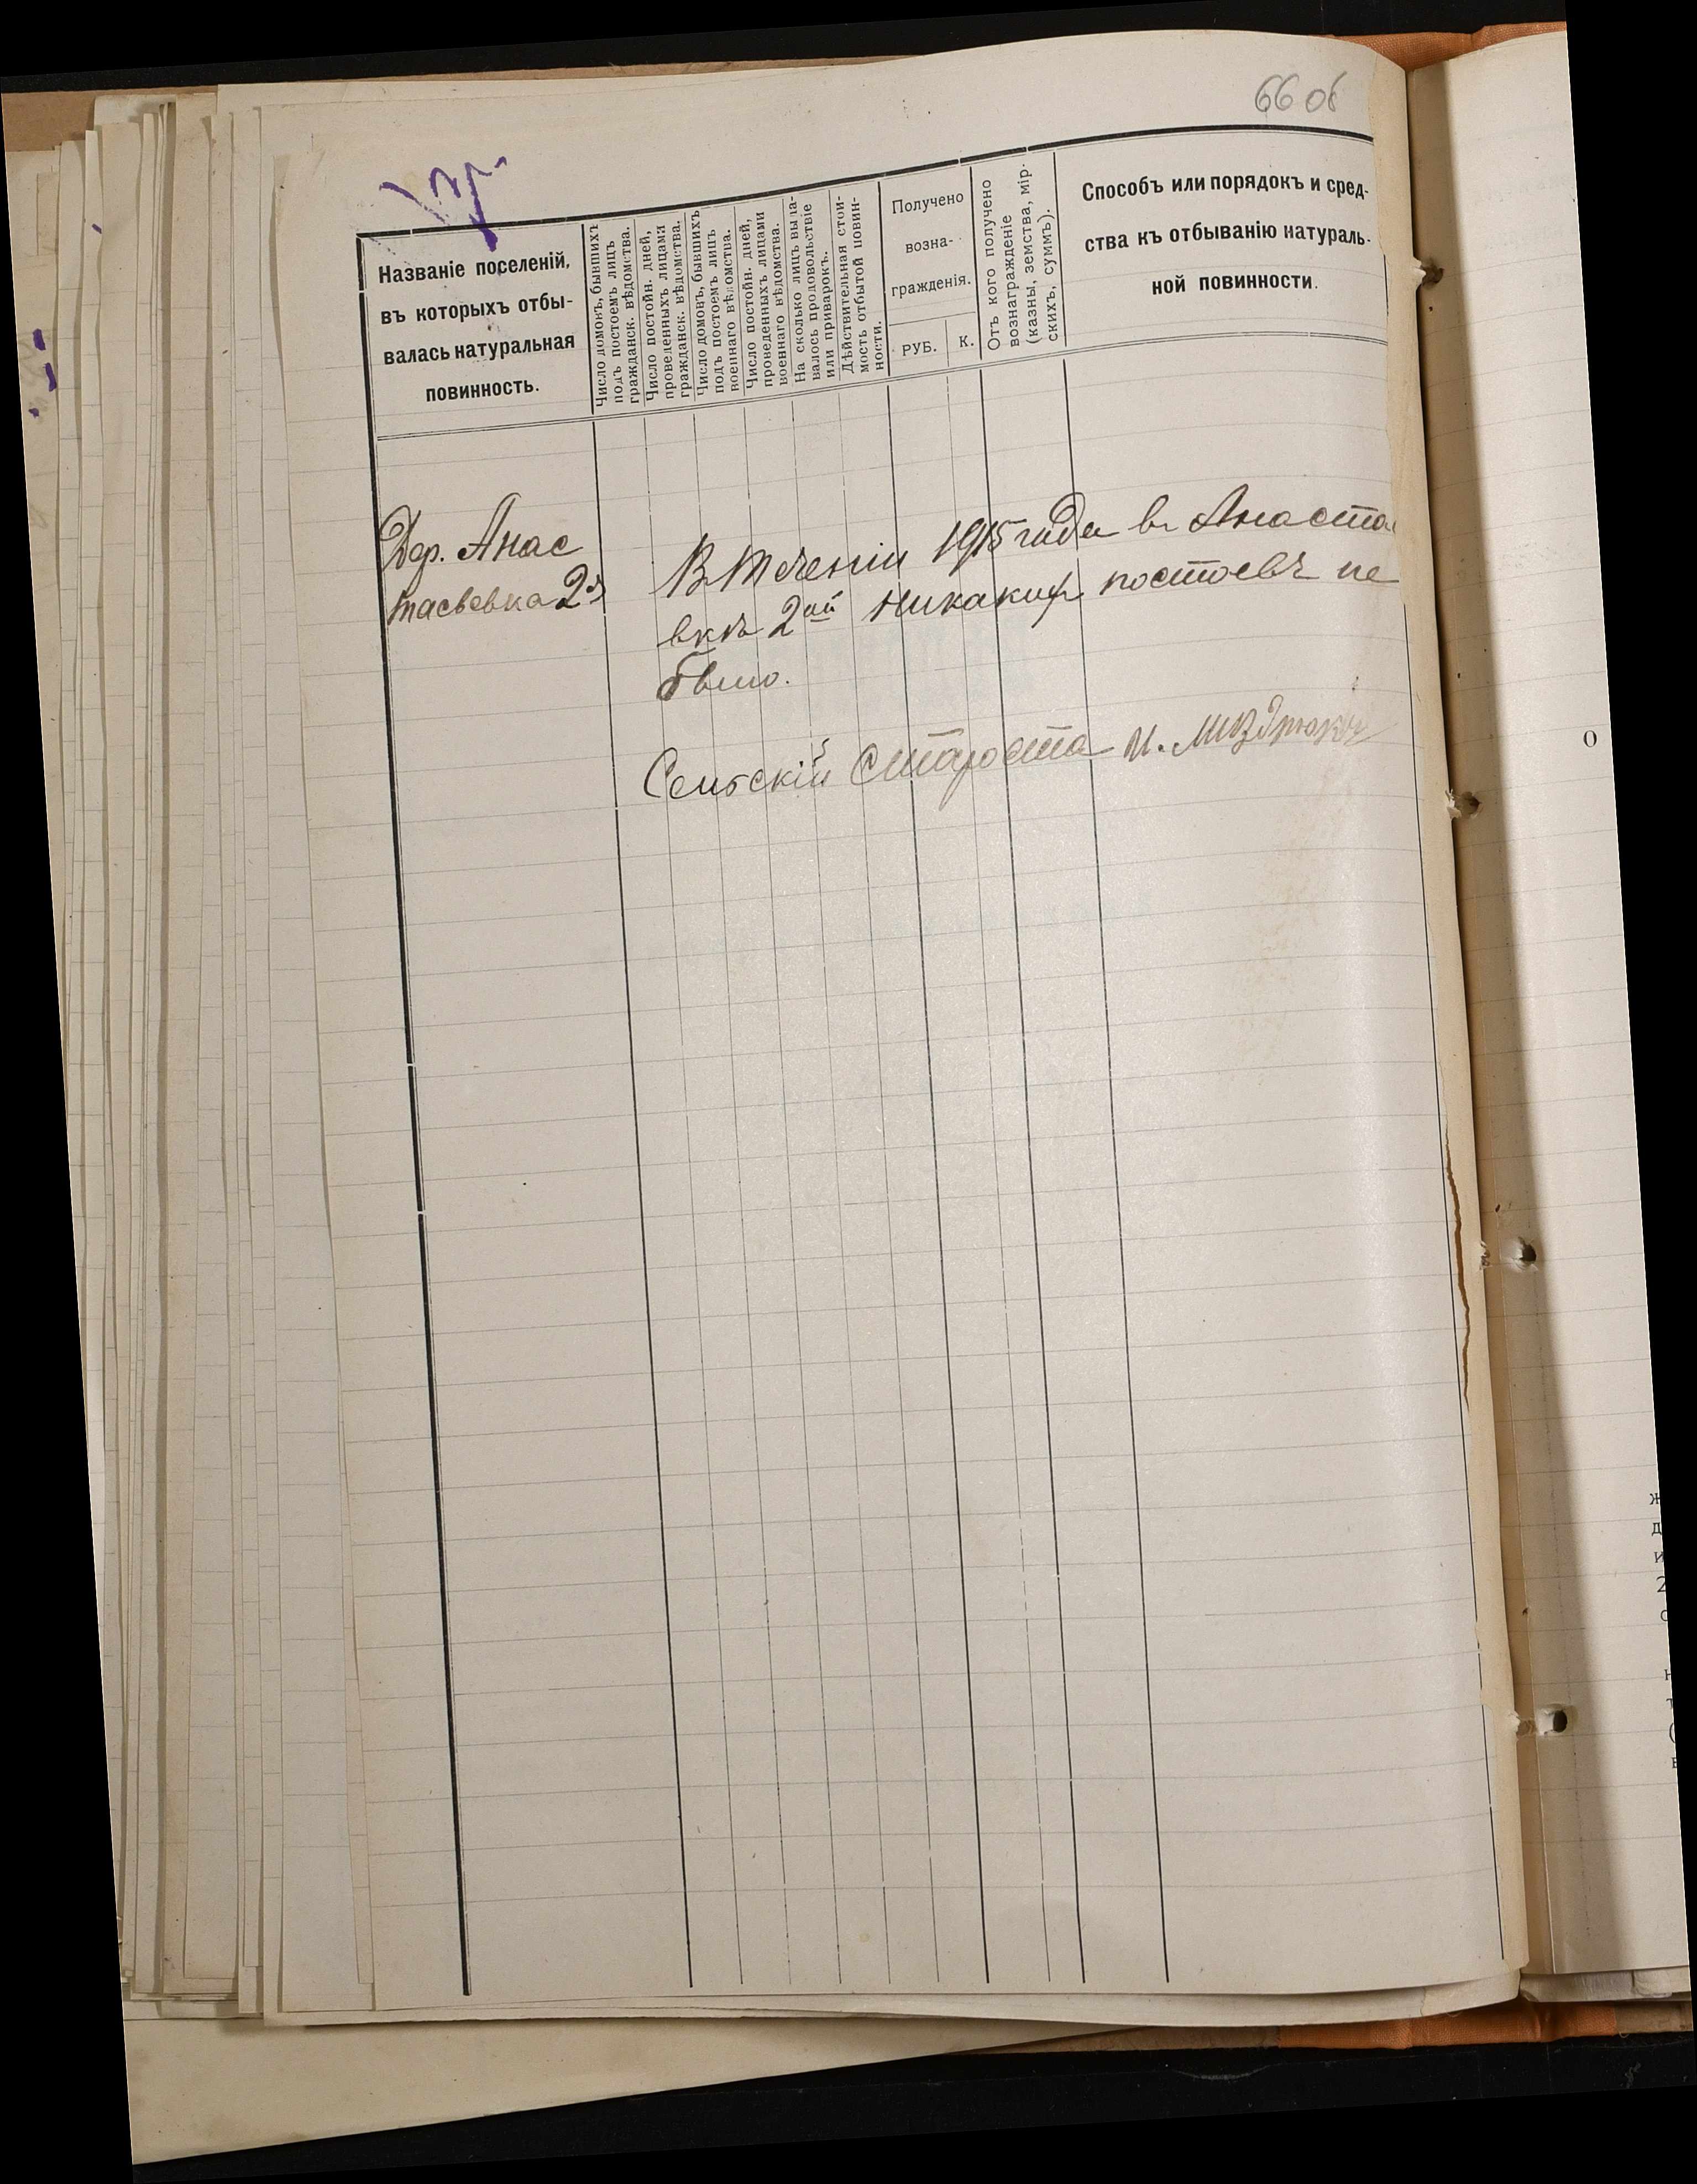 66 об
Названіе поселеній,
въ которыхъ отбы-
валась натуральная
повинность.
Число домовъ, бывшихъ
подъ постоемъ лицъ
гражданск. вѣдомства.
Число постойн. дней,
проведенныхъ лицами
гражданск. вѣдомства.
Число домовъ, бывшихъ
подъ постоемъ лицъ
военнаго вѣдомства.
Число постойн. дней,
проведенныхъ лицами
военнаго вѣдомства.
На сколько лицъ выда-
валось продовольствіе
или приварокъ.
Дѣйствительная стои-
мость отбытой повин-
ности.
Получено
возна-
гражденія.
РУБ.
К.
Отъ кого получено
вознагражденіе
(казны, земства, мір-
скихъ, суммъ).
Способъ или порядокъ и сред-
ства къ отбыванію натураль-
ной повинности.
Дер. Анас
тасьевка 2я
В течении 1915 года в Анаста
вкѣ 2ой никаких постоевъ не
было.
Сельскій Староста И.